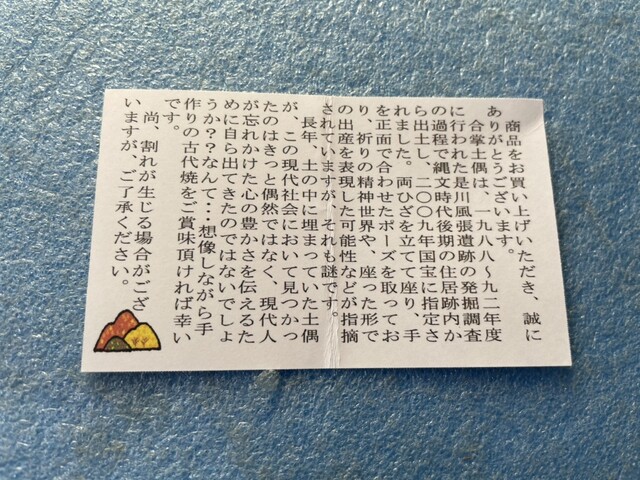 商品をお買い上げいただき、誠に
ありがとうございます。
合掌土偶は、一九八八～九二年度
に行われた是川風張遺跡の発掘調査
の過程で縄文時代後期の住居跡内か
ら出土し、二〇〇九年国宝に指定さ
れました。両ひざを立てて座り、手
を正面で合わせたポーズを取ってお
り、祈りの精神世界や、座った形で
の出産を表現した可能性などが指摘
されていますが、それも謎です。
長年、土の中に埋まっていた土偶
が、この現代社会において見つかっ
たのはきっと偶然ではなく、現代人
が忘れかけた心の豊かさを伝えるた
めに自ら出てきたのではないでしょ
うか？？なんて・・・想像しながら手
作りの古代焼をご賞味頂ければ幸い
です。
尚、割れが生じる場合がござ
いますが、ご了承ください。